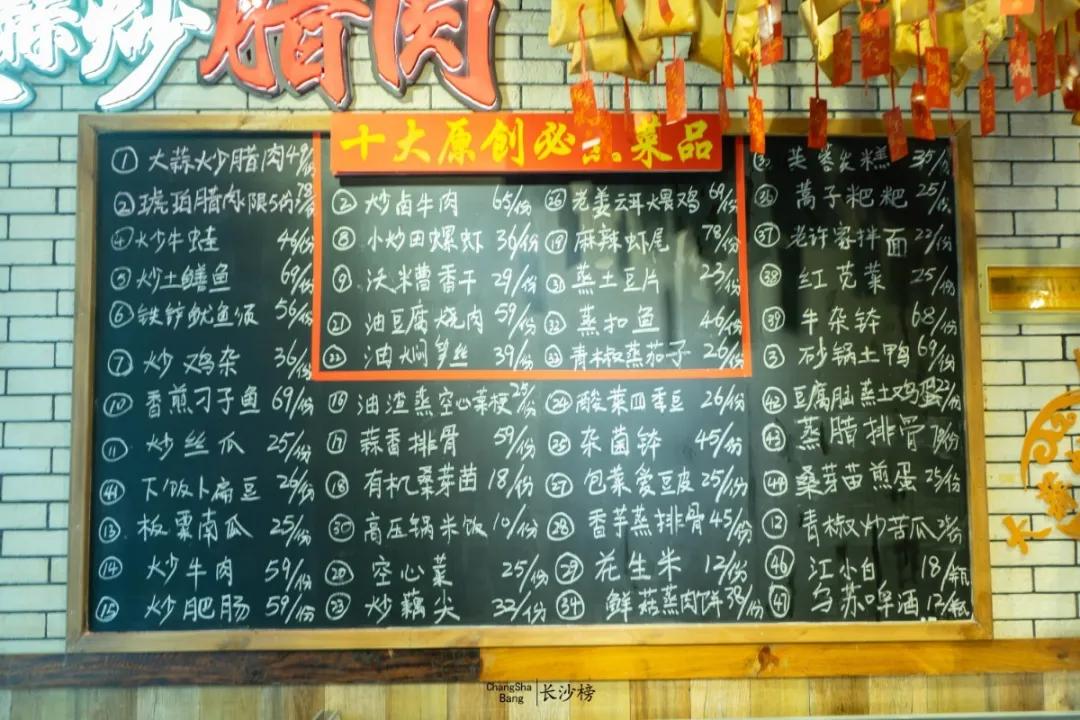 蒜炒腊肉
十大原创必菜品
① 大蒜炒腊肉 49/份
② 琥珀腊肉限5份 78/份
④ 火炒牛蛙 46/份
⑤ 炒土鳝鱼 69/份
⑥ 铁钵鱿鱼须 56/份
⑦ 炒鸡杂 36/份
⑩ 香煎刁子鱼 69/份
⑪ 炒丝瓜 25/份
㊹ 下饭卜扁豆 26/份
⑬ 板栗南瓜 25/份
⑭ 火炒牛肉 59/份
⑮ 炒肥肠 59/份
② 炒卤牛肉 65/份
⑧ 小炒田螺虾 36/份
⑨ 沃米曹香干 29/份
㉑ 油豆腐烧肉 59/份
㉒ 油焖笋丝 39/份
⑯ 油渣蒸空心菜梗 25/份
⑰ 蒜香排骨 59/份
⑱ 有机桑芽菌 18/份
㉚ 高压锅米饭 10/份
⑳ 空心菜 25/份
㉓ 炒藕尖 32/份
㉖ 老姜云耳煨鸡 69/份
⑲ 麻辣虾尾 78/份
㉛ 蒸土豆片 23/份
㉜ 蒸扣鱼 46/份
㉝ 青椒蒸茄子 26/份
㉔ 酸菜四季豆 26/份
㉕ 杂菌钵 45/份
㉗ 包菜爱豆皮 25/份
㉘ 香芋蒸排骨 45/份
㉙ 花生米 12/份
㉞ 鲜菇蒸肉饼 38/份
芙蓉尖糕 35/份
㊱ 蒿子粑粑 25/份
㊲ 老许家拌面 22/份
㊳ 红苋菜 25/份
㊴ 牛杂钵 68/份
③ 砂锅土鸭 69/份
㊷ 豆腐脑蒸土鸡蛋 22/份
㊸ 蒸腊排骨 79/份
㊹ 桑芽苗煎蛋 25/份
⑫ 青椒炒苦瓜
㊻ 江小白 18/瓶
㊼ 乌苏啤酒 12/瓶
ChangSha
Bang
长沙榜